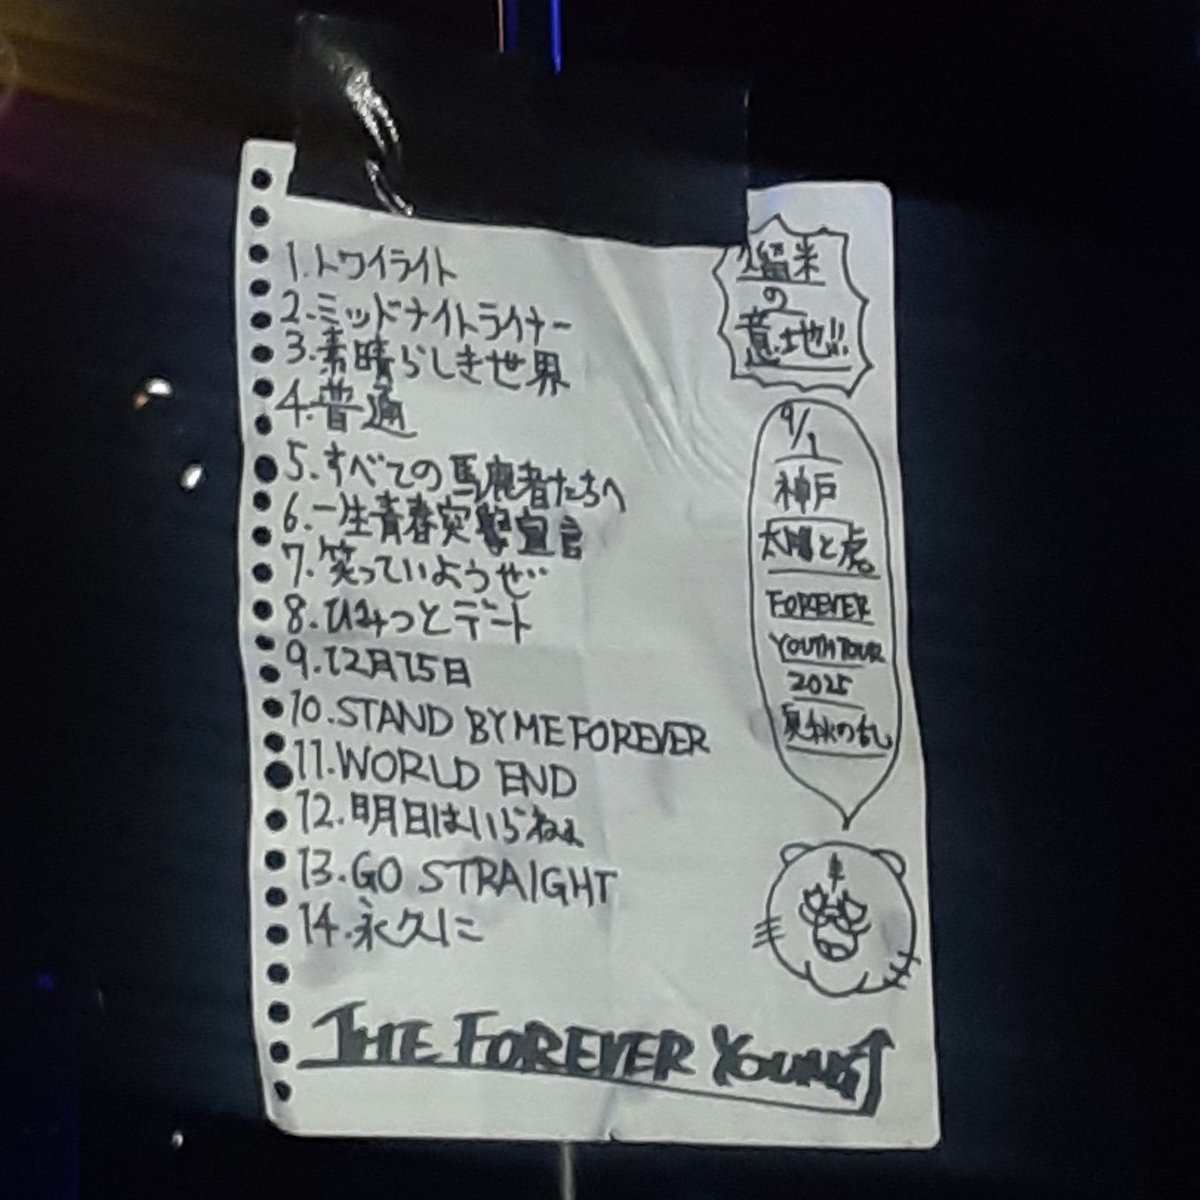 1.トワイライト
2.ミッドナイトライナー
3.素晴らしき世界
4.普通
5.すべての馬鹿者たちへ
6.一生青春突撃宣言
7.笑っていようぜ
8.ひみつとデート
9.12月15日
10.STAND BY ME FOREVER
11.WORLD END
12.明日はいらねぇ
13.GO STRAIGHT
14.永久に
THE FOREVER YOUNG
久留米
の
意地!!
9/1
神戸
太陽と虎
FOREVER
YOUTH TOUR
2025
夏秋の乱